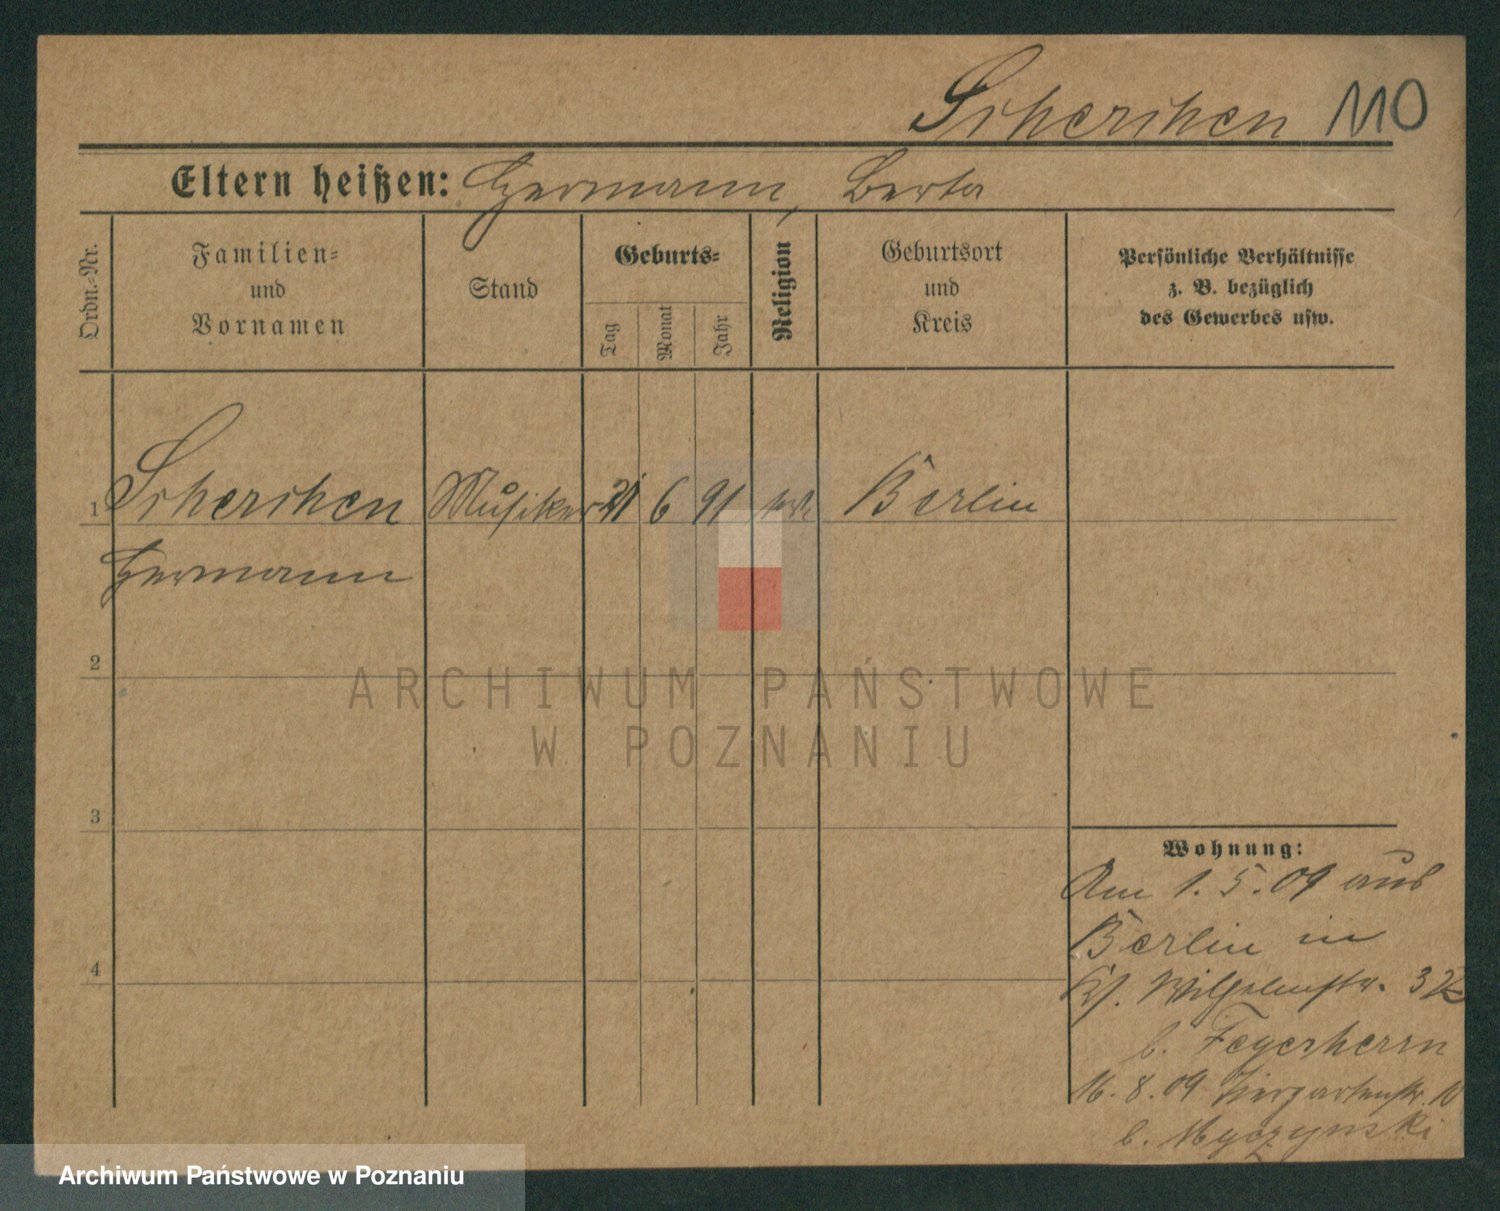 Scherchen 110
Eltern heißen: Hermann, Berta
Ordn.-Nr.
Familien-
und
Vornamen
Stand
Geburts-
Tag
Monat
Jahr
Religion
Geburtsort
und
Kreis
Persönliche Verhältnisse
z. B. bezüglich
des Gewerbes usw.
1 Scherchen Musiker 21 6 91 Berlin
Hermann
2
3
4
ARCHIWUM PAŃSTWOWE
W POZNANIU
Wohnung:
Am 1. 5. 09 aus
Berlin in
Wilhelmstr. 32
b. Fegerherrn
16. 8. 09 Tiergartenstr. 10
b. Myczynski
Archiwum Państwowe w Poznaniu